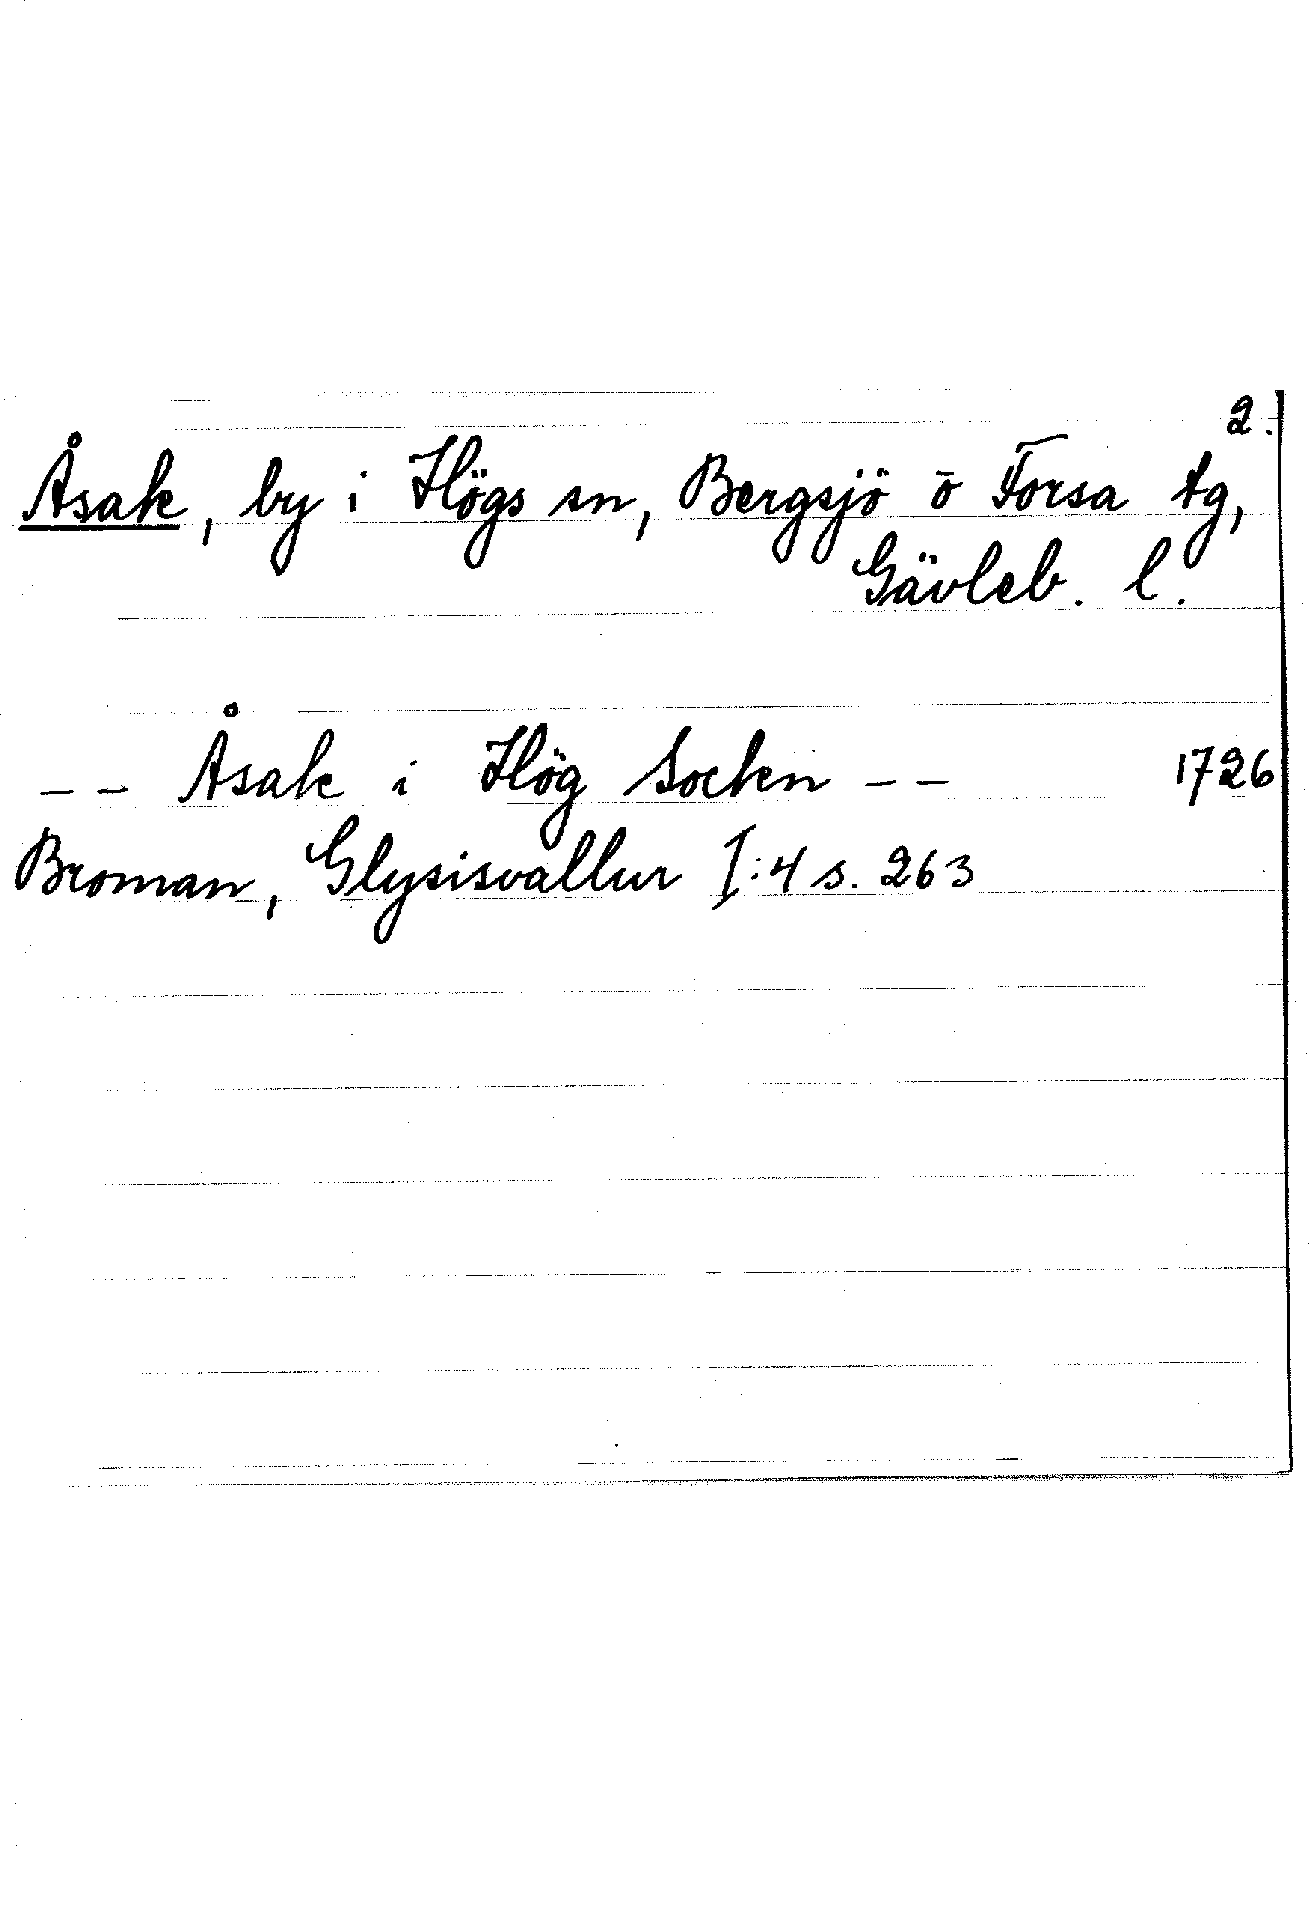 2.
Åsak, by i Högs sn, Bergsjö o Forsa tg,
Gävleb. l.
-- Åsak i Hög Socken -- 1726
Broman, Glysisvallur I:4 s. 263